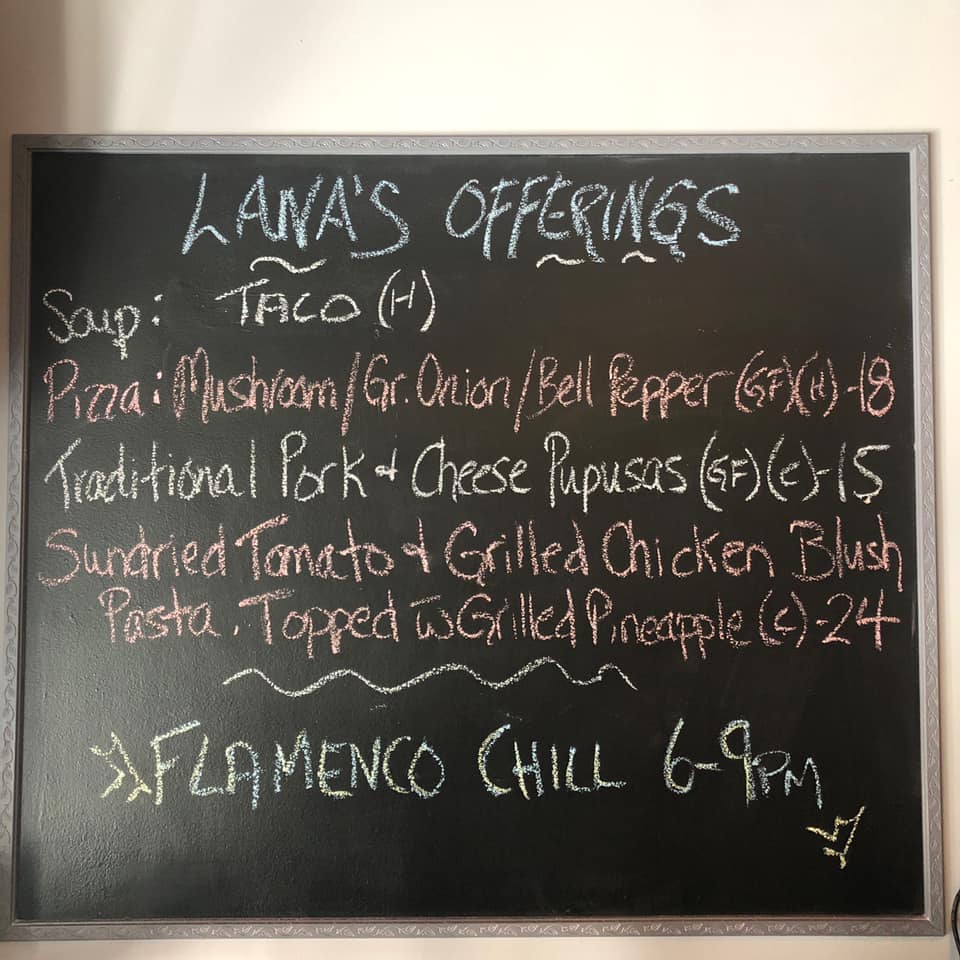 LANA'S OFFERINGS
Soup: TACO (H)
Pizza: Mushroom/Gr. Onion/Bell Pepper (GF)(H) -18
Traditional Pork & Cheese Pupusas (GF)(C) -15
Sundried Tomato & Grilled Chicken Blush
Pasta. Topped w Grilled Pineapple (C) -24
FLAMENCO CHILL 6-9PM